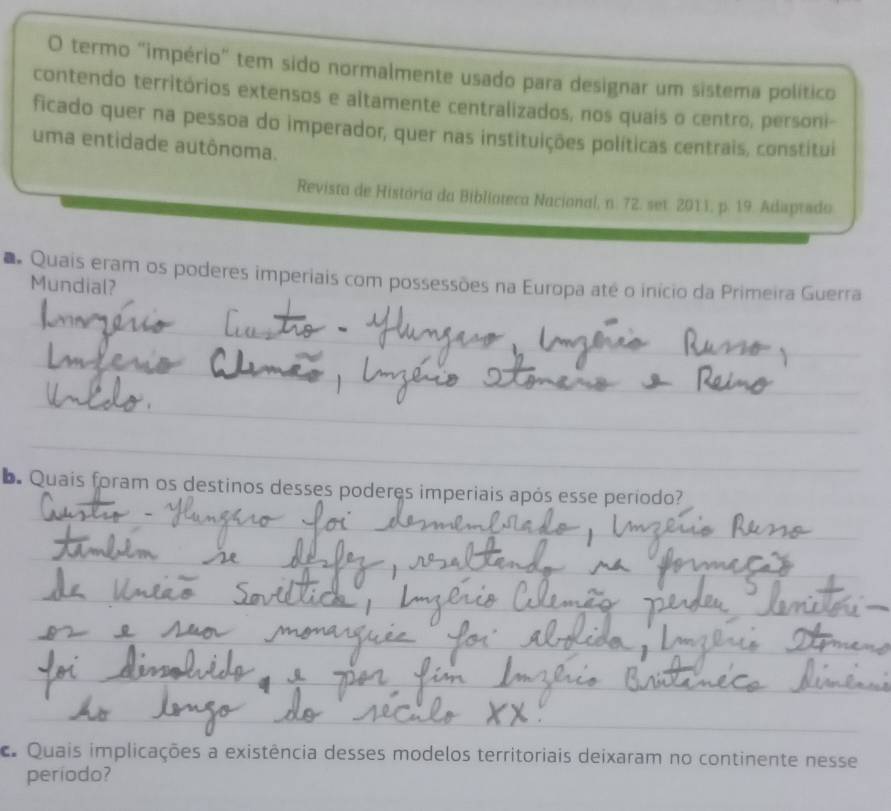 O termo "império" tem sido normalmente usado para designar um sistema político
contendo territórios extensos e altamente centralizados, nos quais o centro, personi-
ficado quer na pessoa do imperador, quer nas instituições políticas centrais, constitui
uma entidade autônoma.
Revista de História da Biblioteca Nacional, n. 72, set. 2011, p. 19. Adaptado.
a. Quais eram os poderes imperiais com possessões na Europa até o início da Primeira Guerra
Mundial?
Império Austro-Húngaro, Império Russo,
Império Alemão, Império Otomano e Reino
Unido.
b. Quais foram os destinos desses poderes imperiais após esse período?
Austro-Húngaro foi desmembrado, Império Russo
também se desfez, resultando na formação
da União Soviética, Império Alemão perdeu territóri-
os e sua monarquia foi abolida, Império Otomano
foi dissolvido, e por fim Império Britânico
ao longo do século XX.
c. Quais implicações a existência desses modelos territoriais deixaram no continente nesse
período?